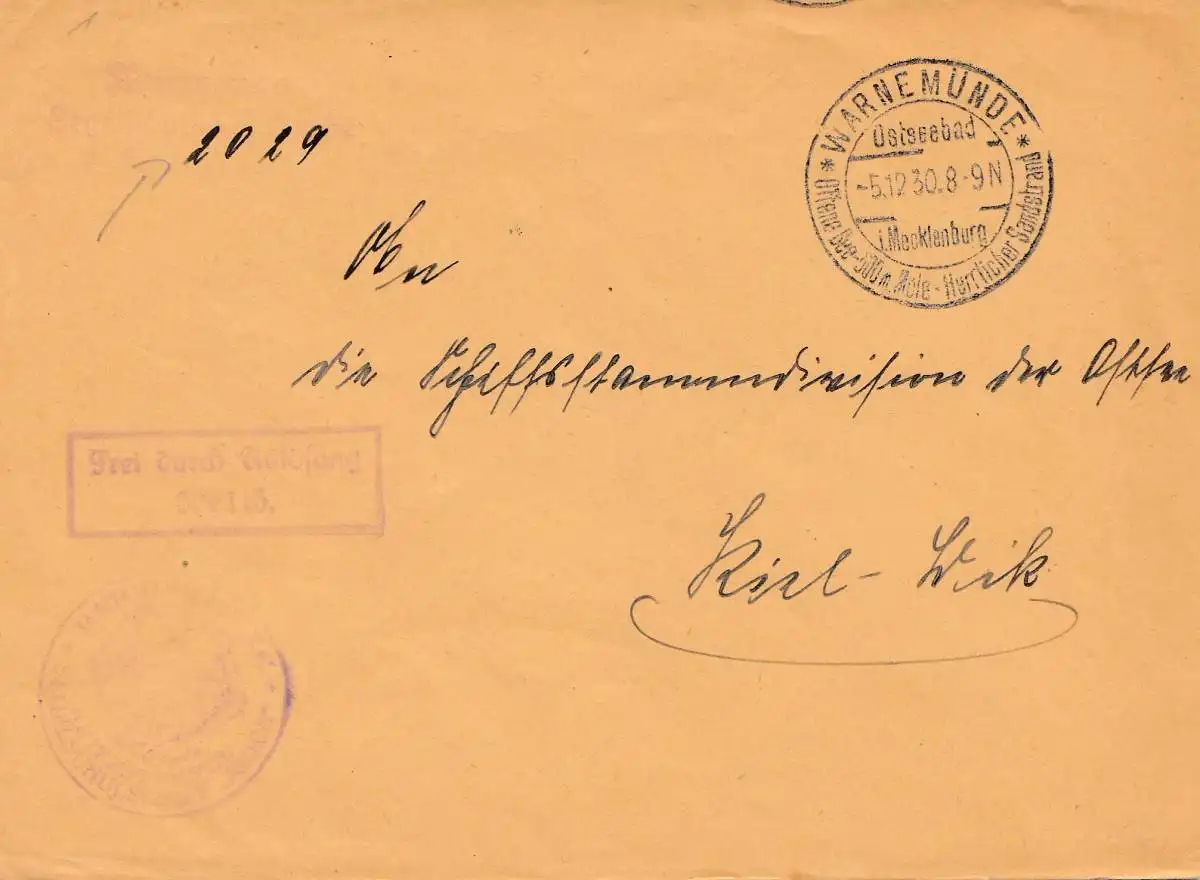 2029
WARNEMÜNDE
Ostseebad
-5.12.30.8-9N
i.Mecklenburg
* Offene See-500m. Mole - Herrlicher Sandstrand *
An
die Schiffsstammdivision der Ostsee
Frei durch Ablösung
Kiel-Wik